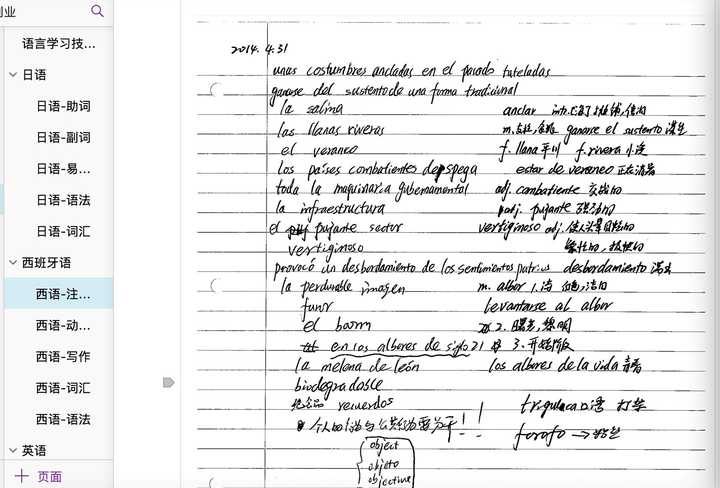 创业
语言学习技...
日语
日语-助词
日语-副词
日语-易...
日语-语法
日语-词汇
西班牙语
西语-注...
西语-动...
西语-写作
西语-词汇
西语-语法
英语
页面
2014. 4. 31
unas costumbres ancladas en el pasado tuteladas
ganarse del sustento de una forma tradicional
la salina anclar
las llanas riveras ganarse el sustento 谋生
el veraneo f. llana 平川 f. rivera 小溪
los países combatientes despega estar de veraneo
toda la maquinaria gubernamental adj. combatiente 交战的
la infraestructura adj. pujante 强劲的
el pujante sector vertiginoso adj. 使人头晕目眩的
vertiginoso
provocó un desbordamiento de los sentimientos patrios desbordamiento
la perdurable imagen m. albor 1.
furor levantarse al albor
el boom 2. 曙光, 黎明
en los albores de siglo 21 3. 开始阶段
la melena de león los albores de la vida 青春
biodegradable
纪念品 recuerdos
object
objeto
objective